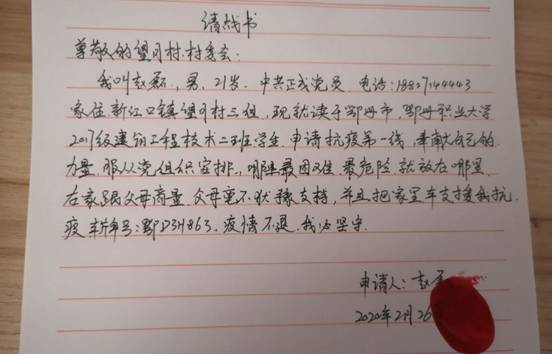 请战书
尊敬的望月村村委会:
我叫赵磊,男,21岁.中共正式党员 电话:18827144443
家住新江口镇望月村三组,现就读于鄂州市,鄂州职业大学
2017级建筑工程技术二班学生,申请抗疫第一线,奉献自己的
力量,服从党组织安排,哪里最困难 最危险 就放在哪里
在家跟父母商量 父母毫不犹豫支持,并且把家里车支援我抗
疫 车牌号:鄂D3H863.疫情不退.我必坚守.
申请人:赵
2020年2月26